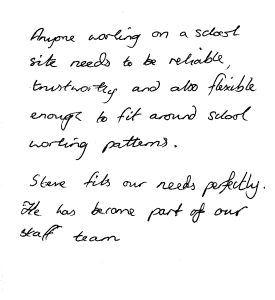 Anyone working on a school
site needs to be reliable,
trustworthy and also flexible
enough to fit around school
working patterns.
Steve fits our needs perfectly.
He has become part of our
staff team